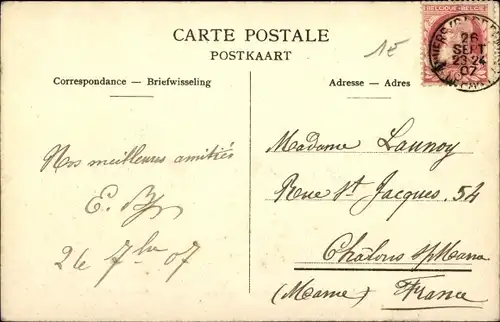 CARTE POSTALE
POSTKAART
1E
BELGIQUE-BELGIË
26
SEPT
23-24
07
Correspondance — Briefwisseling
Adresse — Adres
Nos meilleures amitiés
E. By
26 7bre 07
Madame Launoy
Rue St Jacques. 54
Châlons s/Marne
(Marne) France